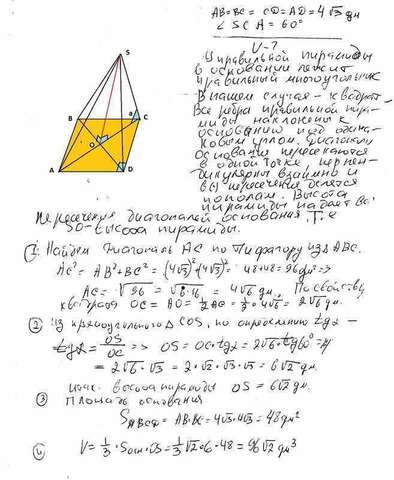 AB=BC= CD=AD=4√3 дм
∠SCA=60°
V-?
У правильной пирамиды
в основании лежит
правильный многоугольник
В нашем случае - квадрат.
Все ребра правильной пира-
миды наклонены к
основанию под одина-
ковым углом. Диагонали
основания пересекаются
в одной точке, перпен-
дикулярны взаимно и
в пересечении делятся
пополам. Высота
пирамиды падает в
S
B
C
O
A
D
пересечение диагоналей основания. Т.е
SO - высота пирамиды.
① Найдем диагональ AC по Пифагору из ABC.
AC²= AB²+BC²= (4√3)²+(4√3)²= 48+48=96дм²=>
AC= √96 = √6·16 = 4√6 дм. По свойству
квадрата OC=AO=½AC=½·4√6=2√6 дм.
② Из прямоугольного Δ COS, по определению tgα -
tgα= OS/OC => OS=OC·tgα=2√6·tg60°=
= 2√6·√3 = 2·√2·√3·√3=6√2 дм.
высота пирамиды OS=6√2 дм.
③ Площадь основания
S ABCD= AB·BC=4√3·4√3=48дм²
④ V=⅓·Sосн·OS=⅓√2·6·48=96√2 дм³